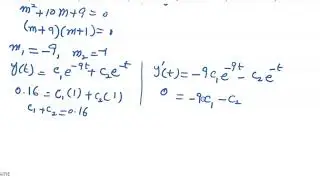 m²+10m+9=0
(m+9)(m+1)=0
m₁=-9, m₂=-1
y(t)= c₁e^-9t+c₂e^-t
0.16=c₁(1)+c₂(1)
c₁+c₂=0.16
y'(t)=-9c₁e^-9t-c₂e^-t
0=-9c₁-c₂